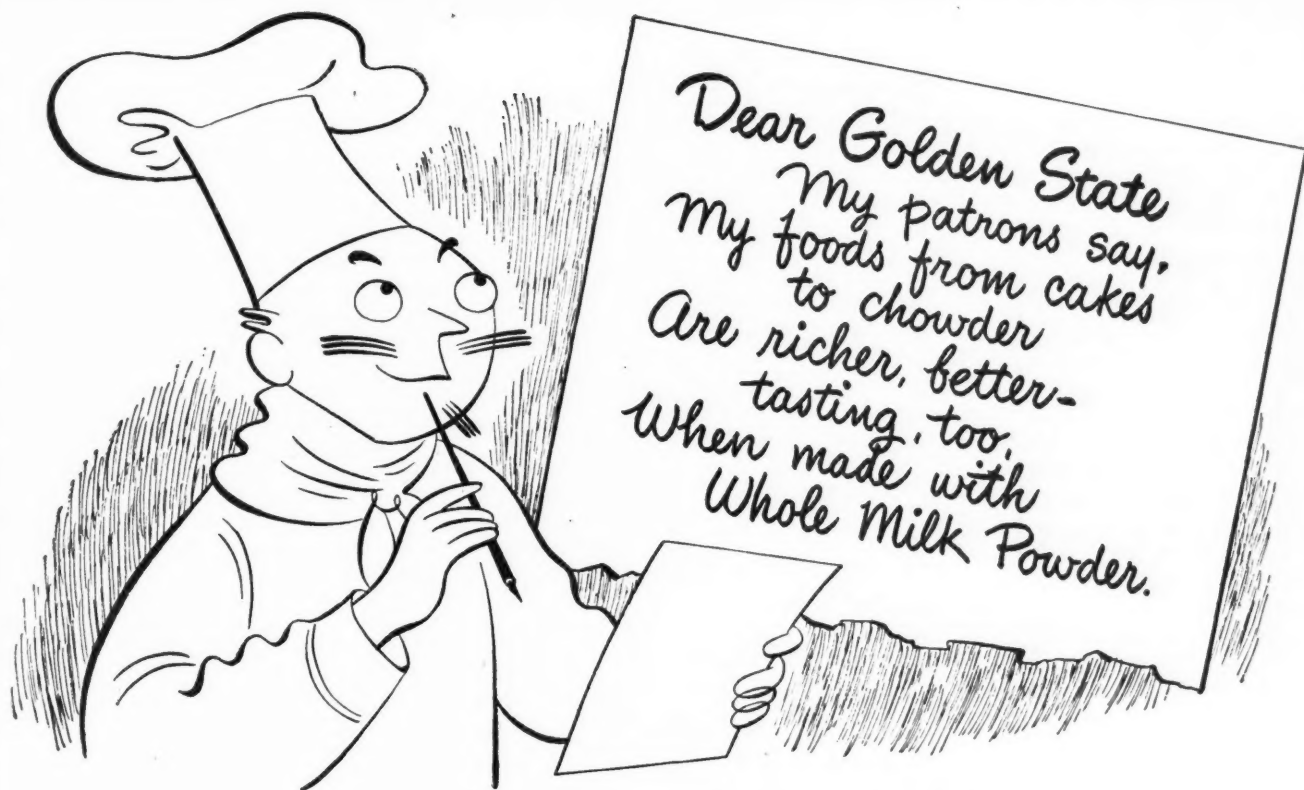 Dear Golden State
My patrons say,
My foods from cakes
to chowder
Are richer, better-
tasting, too,
When made with
Whole Milk Powder.